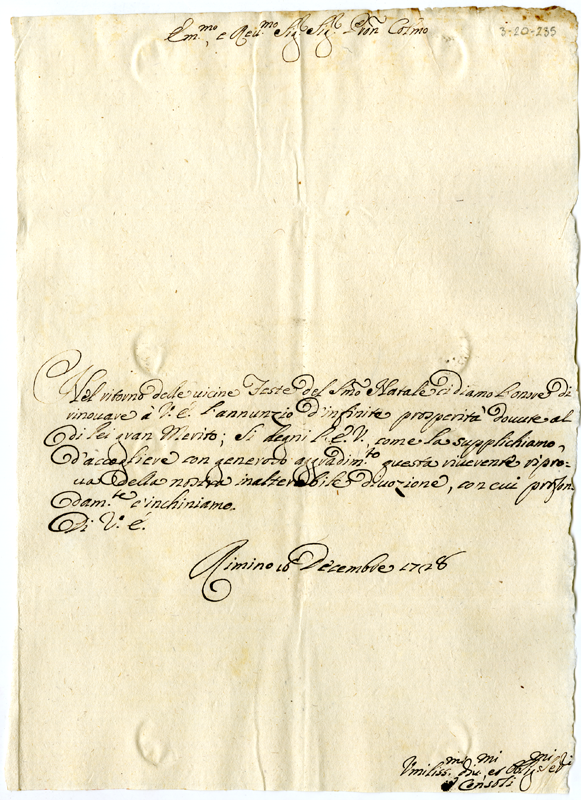 Em.mo, e Reu.mo Sig.r Sig.r P̃ron Colmo
3-20-235
Nel ritorno delle uicine Feste del Smõ Natale ci diamo l'onore di
rinouare à V. E. l'annunzio d'infinite prosperità douute al
di lei gran Merito; si degni l'E.V., come la supplichiamo,
d'accogliere con generoso aggradim.to questa riuerente ripro-
ua della nostra inalterabile diuozione, con cui profon
dam.te c'inchiniamo.
Di V. E.
Rimino 18 Decembre 1728
Vmiliss.mi Diu.mi, et Oblig.mi Ser.i
i Consoli